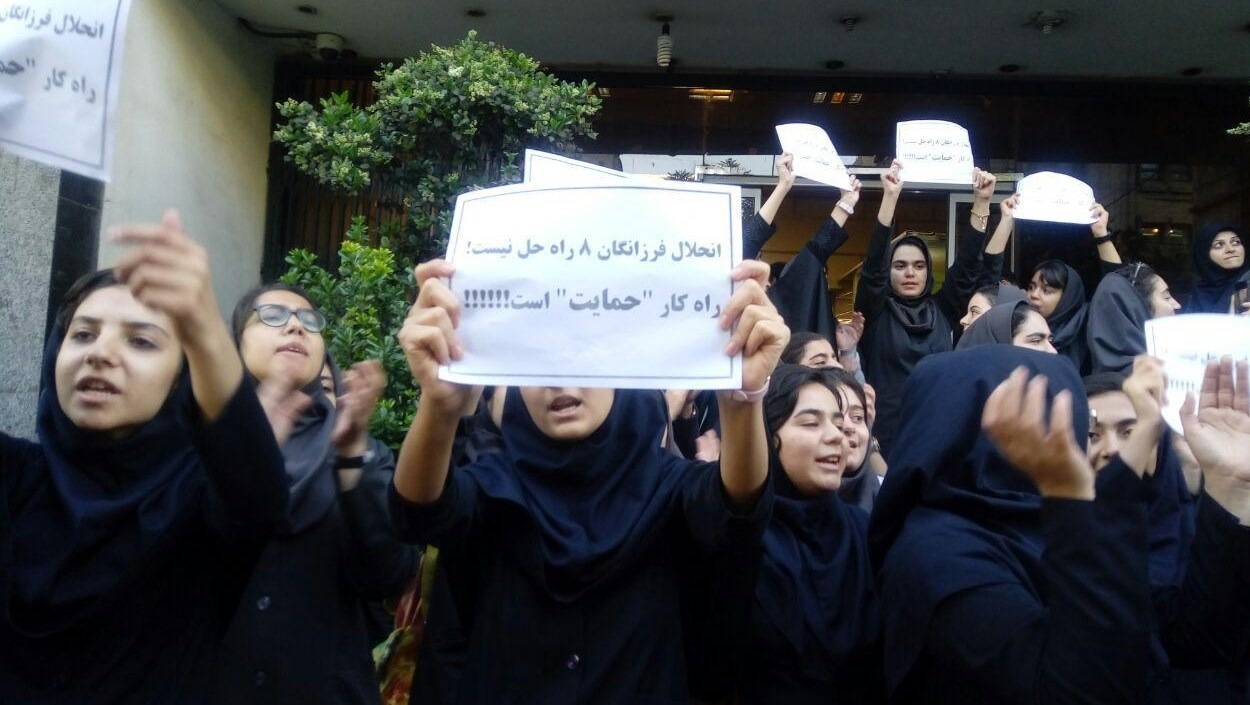 انحلال فرزانگان
راه کار "
انحلال فرزانگان ۸ راه حل نیست!
راه کار "حمایت" است!!!!!!
انحلال فرزانگان ۸ راه حل نیست!
راه کار "حمایت" است!!!!!!